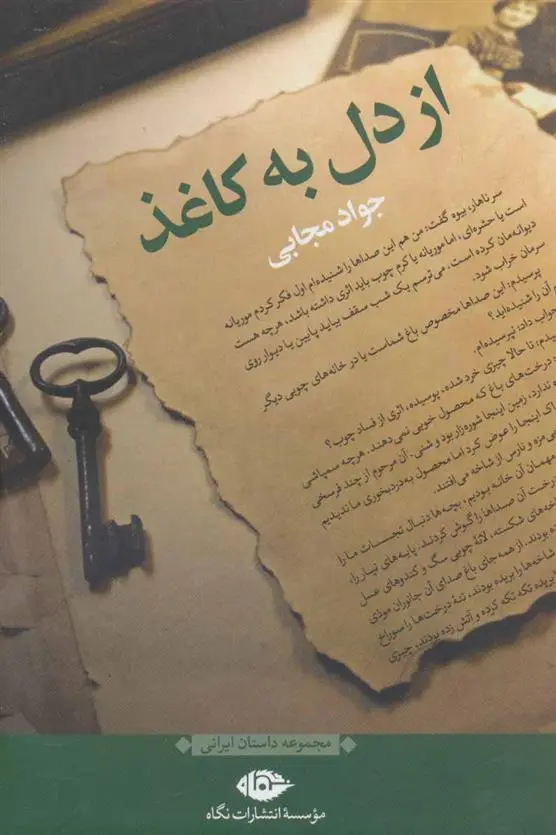 از دل به کاغذ
جواد مجابی
سر ناهار، بیوه گفت: من هم این صداها را شنیده‌ام اول فکر کردم موریانه
است یا حشره‌ای، اما موریانه یا کرم چوب باید اثری داشته باشد، هرچه هست
دیوانه‌مان کرده است. می‌ترسم یک شب سقف بیاید پایین یا دیوار روی
سرمان خراب شود.
پرسیدم: این صداها مخصوص باغ شماست یا در خانه‌های چوبی دیگر
آن را شنیده‌اید؟
جواب داد: نپرسیده‌ام.
تا حالا چیزی خرد شده، پوسیده، اثری از فساد چوب؟
درخت‌های باغ که محصول خوبی نمی‌دهند. هرچه سمپاشی
ندارد، زمین اینجا شوره‌زار بود و شنی. آن مرحوم از چند فرسخی
اینجا را عوض کرد اما محصول به‌دردبخوری ما ندیدیم
بی‌مزه و نارس از شاخه می‌افتند.
مهمان آن خانه بودیم، بچه‌ها دنبال تجسسات ما را
درخت آن صداها را گوش کردند. پایه‌های تپبار را،
شکسته، لانهٔ چوبی سگ و کندوهای عسل
بودند. از همه‌جای باغ صدای آن جانوران موذی
شاخه‌ها را بریده بودند، تنهٔ درخت‌ها را سوراخ
بریده تکه تکه کرده و آتش زده بودند، چیزی
مجموعه داستان ایرانی
مؤسسهٔ انتشارات نگاه